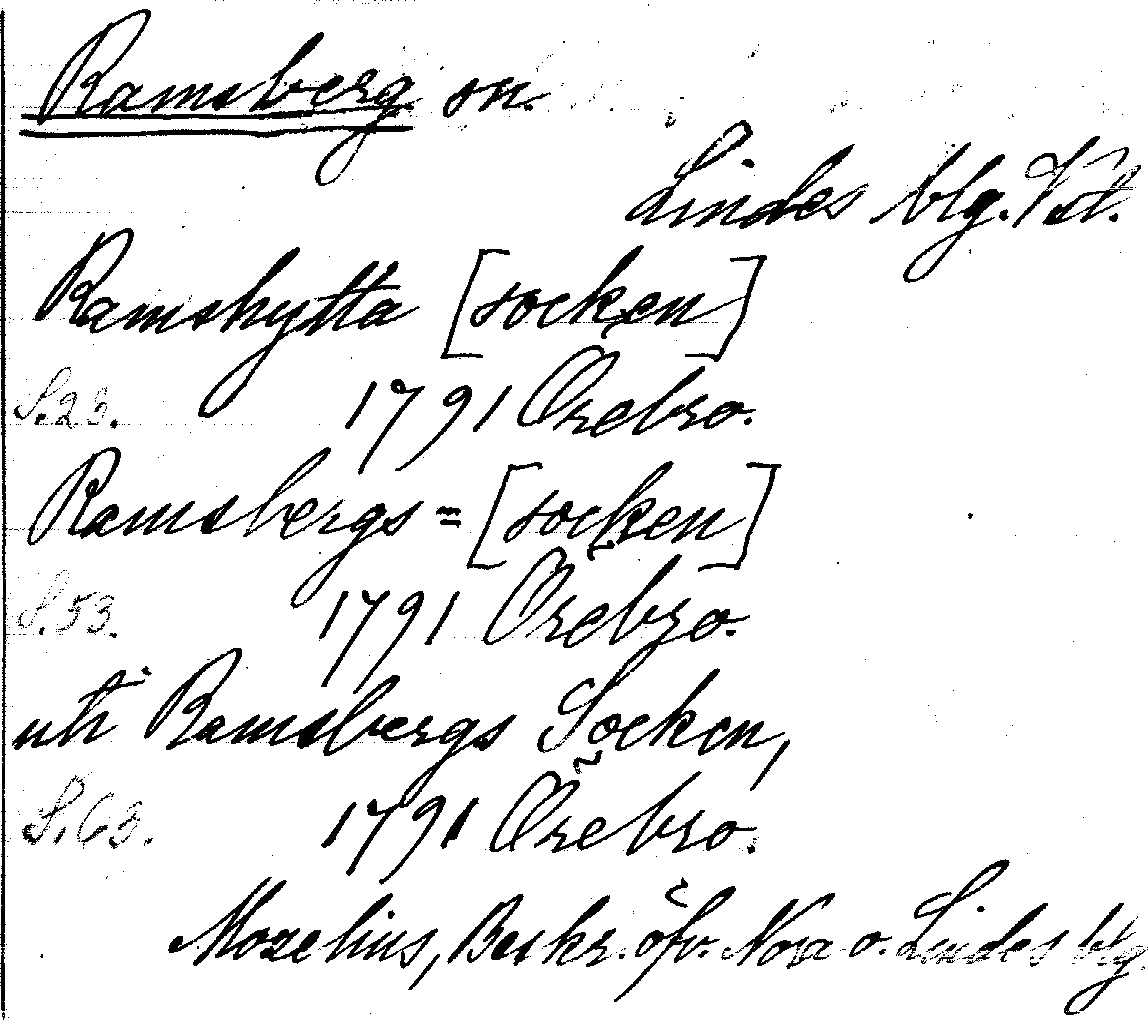 Ramsberg sn.
Lindes blg. Vstl.
Ramshytta [socken]
S.23. 1791 Örebro.
Ramsbergs = [socken]
S.53. 1791 Örebro.
uti Ramsbergs Socken,
S.63. 1791 Örebro.
Mozelius, Beskr. öfv. Nora o. Lindes blg